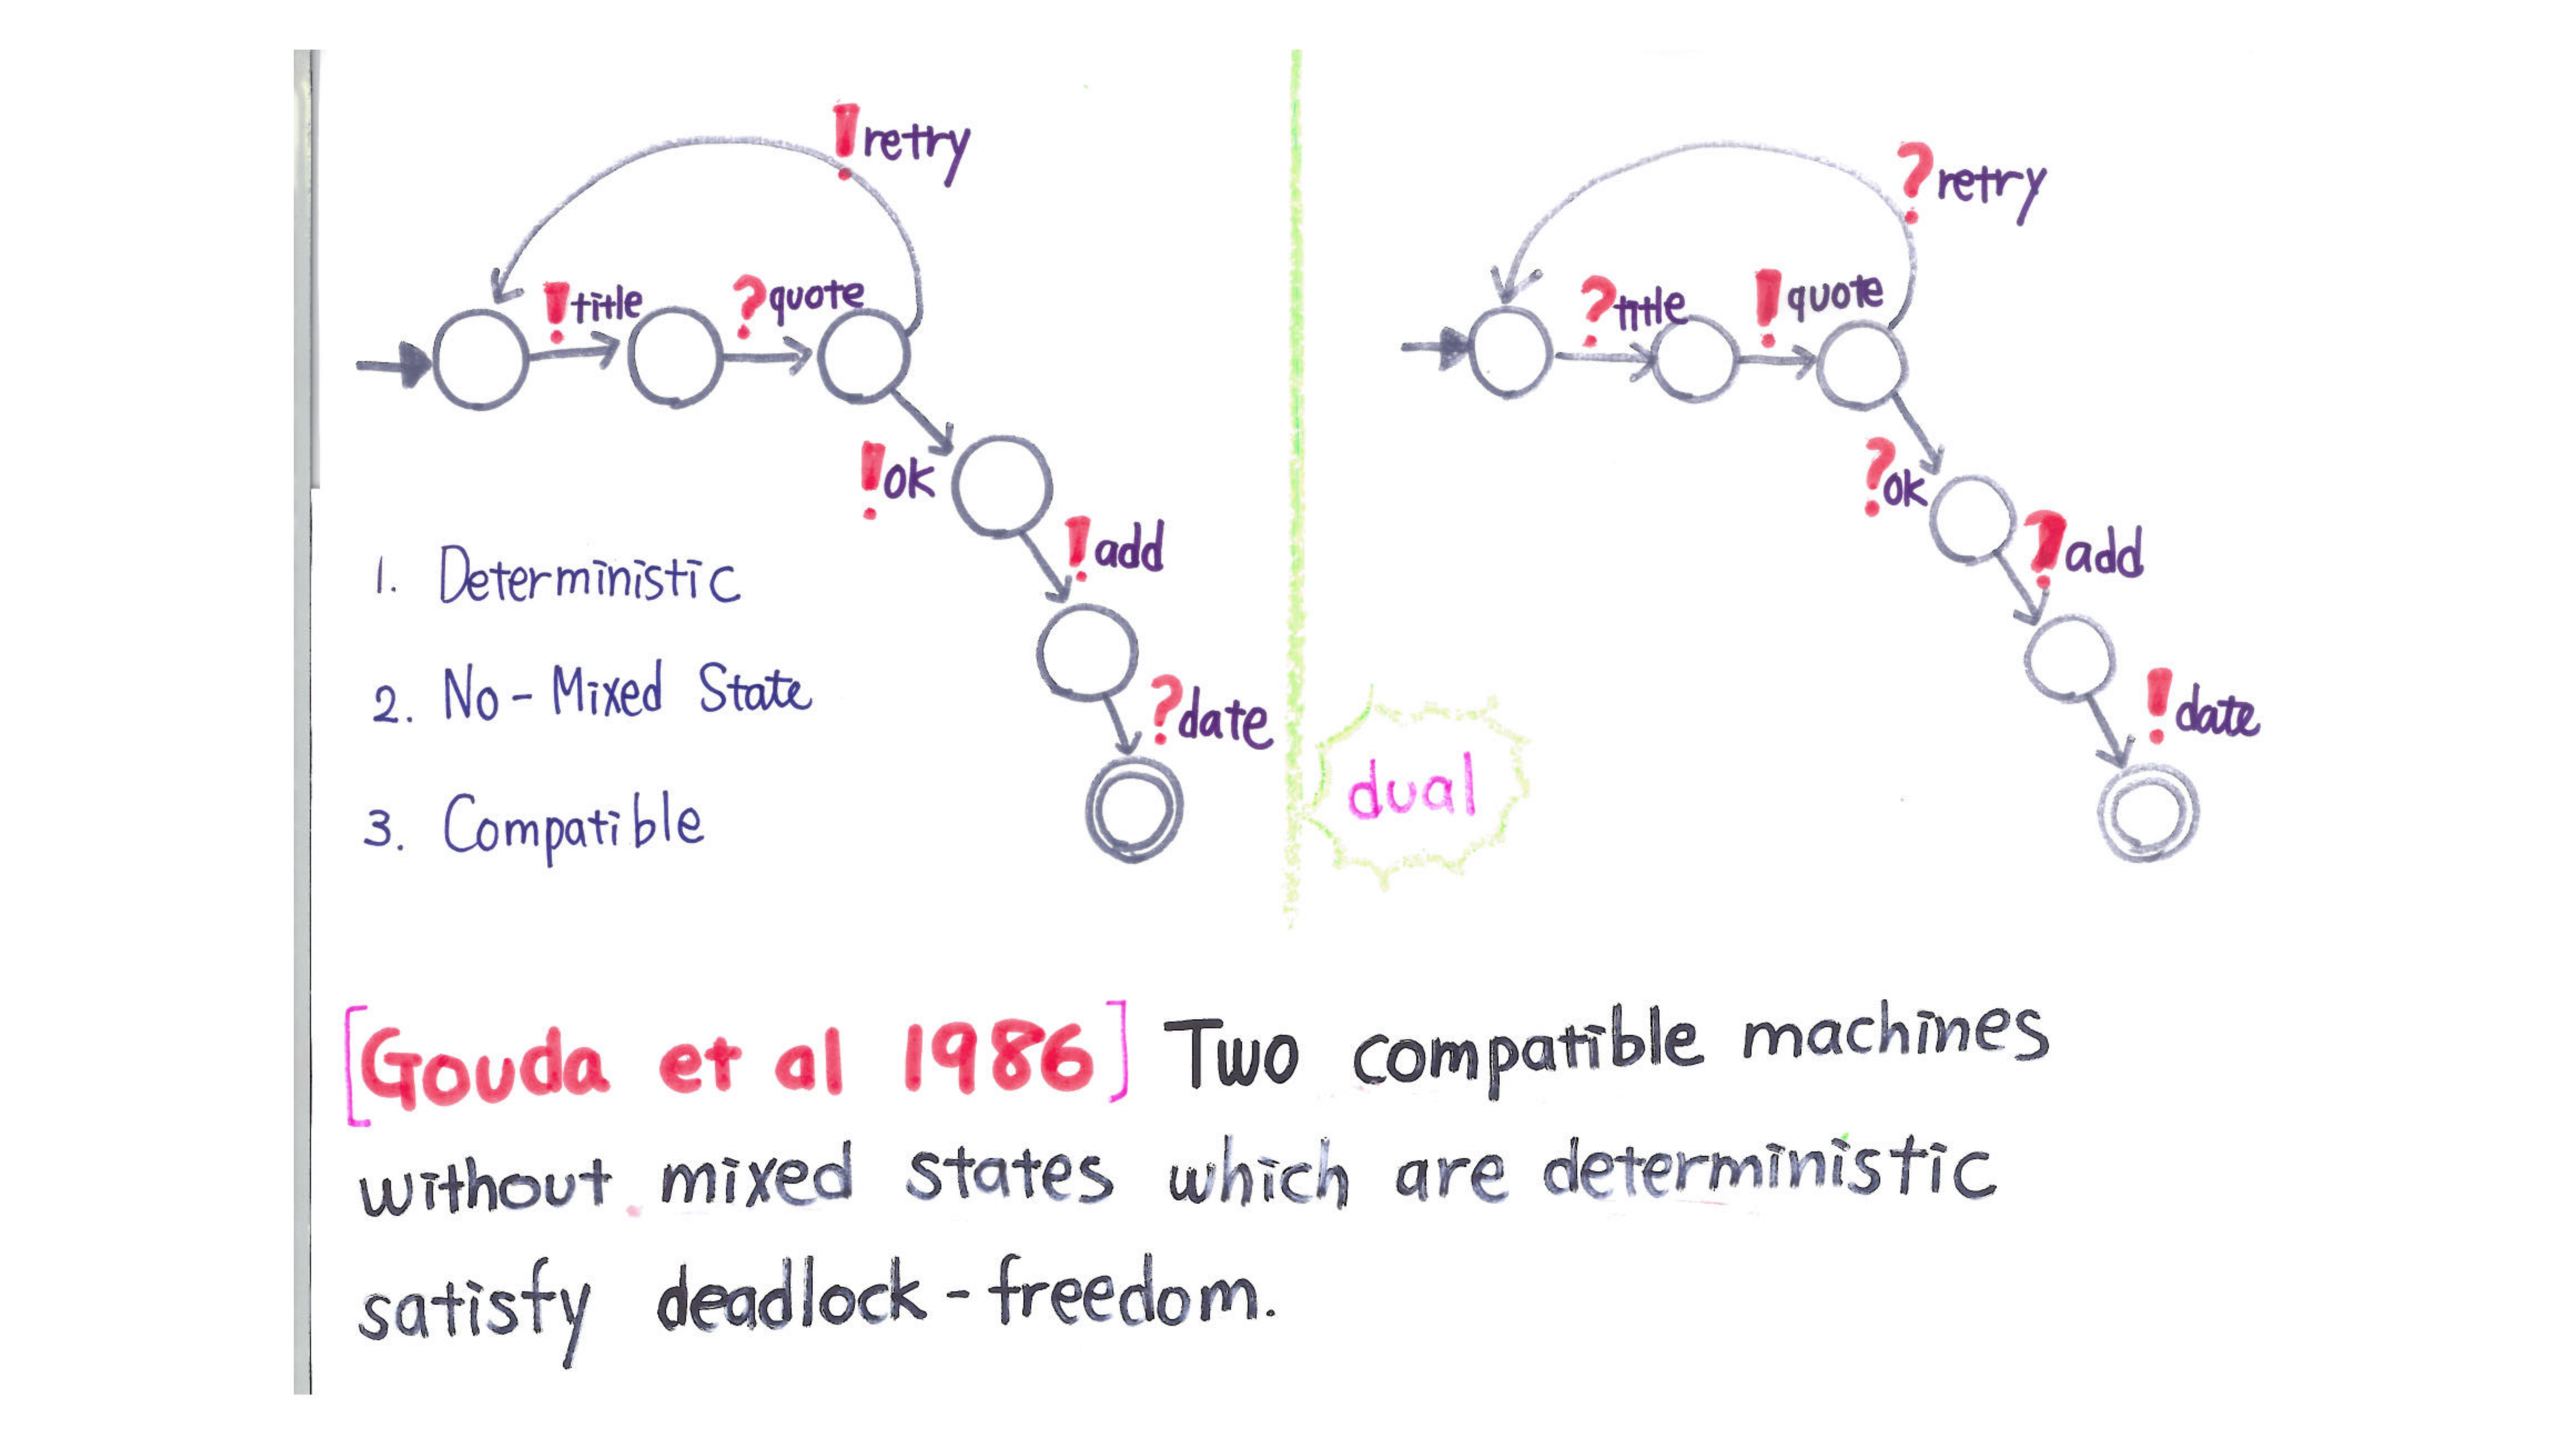 !retry
!title
?quote
!ok
!add
?date
1. Deterministic
2. No-Mixed State
3. Compatible
?retry
?title
!quote
?ok
?add
!date
dual
[Gouda et al 1986] Two compatible machines
without mixed states which are deterministic
satisfy deadlock-freedom.